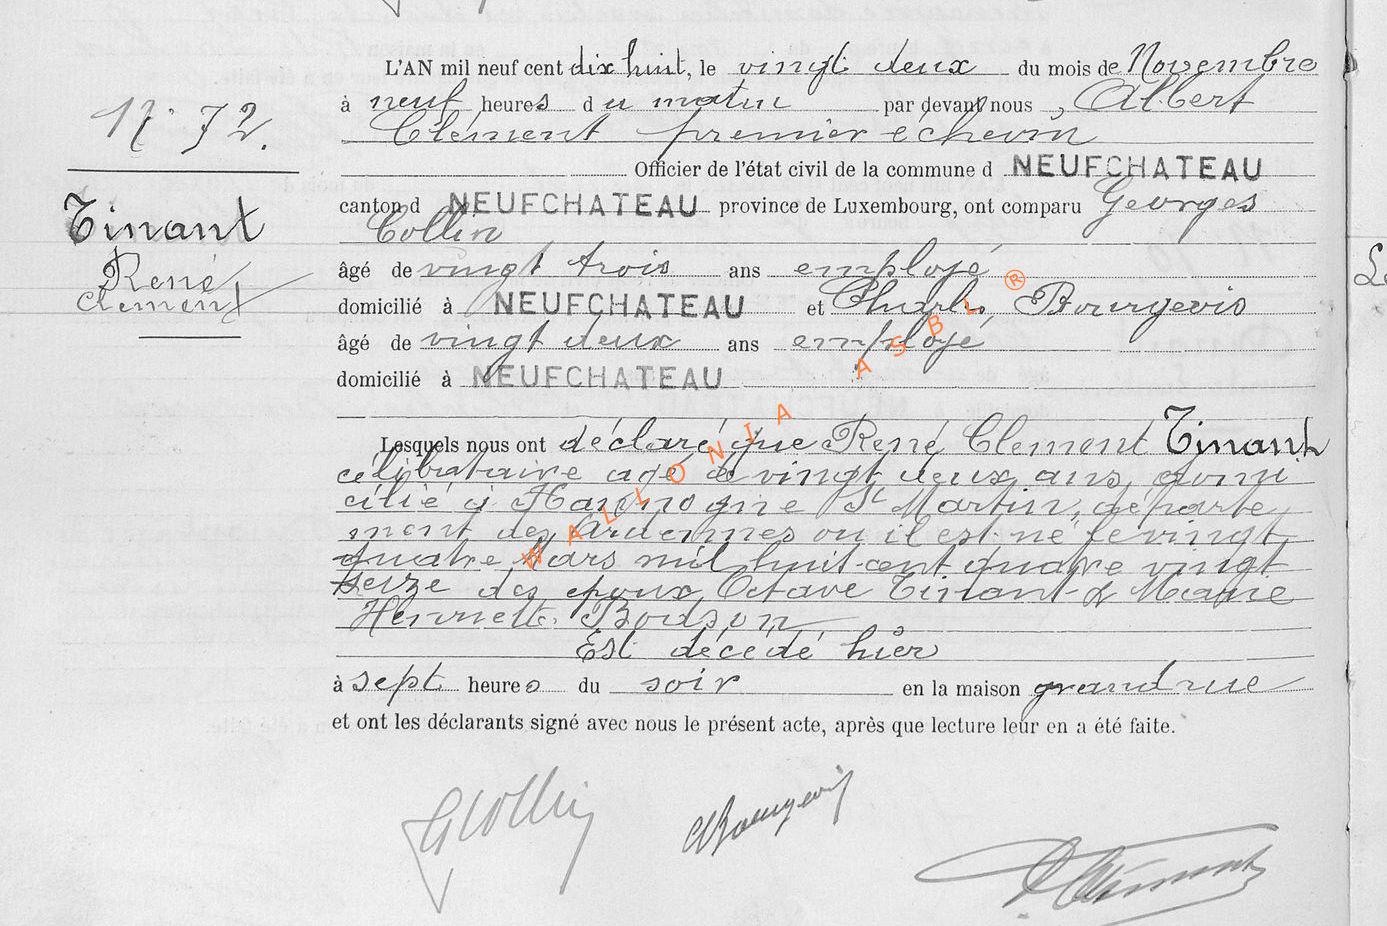 L'AN mil neuf cent dix huit, le vingt deux du mois de Novembre
à neuf heures du matin par devant nous, Albert
Clément premier échevin
Officier de l'état civil de la commune d NEUFCHATEAU
canton d NEUFCHATEAU province de Luxembourg, ont comparu Georges
Collin
âgé de vingt trois ans employé
domicilié à NEUFCHATEAU et Charles Bourgeois
âgé de vingt deux ans employé
domicilié à NEUFCHATEAU
Lesquels nous ont déclaré que René Clement Tinant
célibataire agé de vingt deux ans, domi
cilié à Hannogne St Martin, départe
ment des Ardennes ou il est né le vingt
quatre Mars mil huit cent quatre vingt
seize des epoux Octave Tinant & Marie
Henriette Bodson
Est décédé hier
à sept heures du soir en la maison grand rue
et ont les déclarants signé avec nous le présent acte, après que lecture leur en a été faite.
N° 72.
Tinant
René
Clement
GCollin
ChBourgeois
AClément
WALLONIA ASBL ®
Le